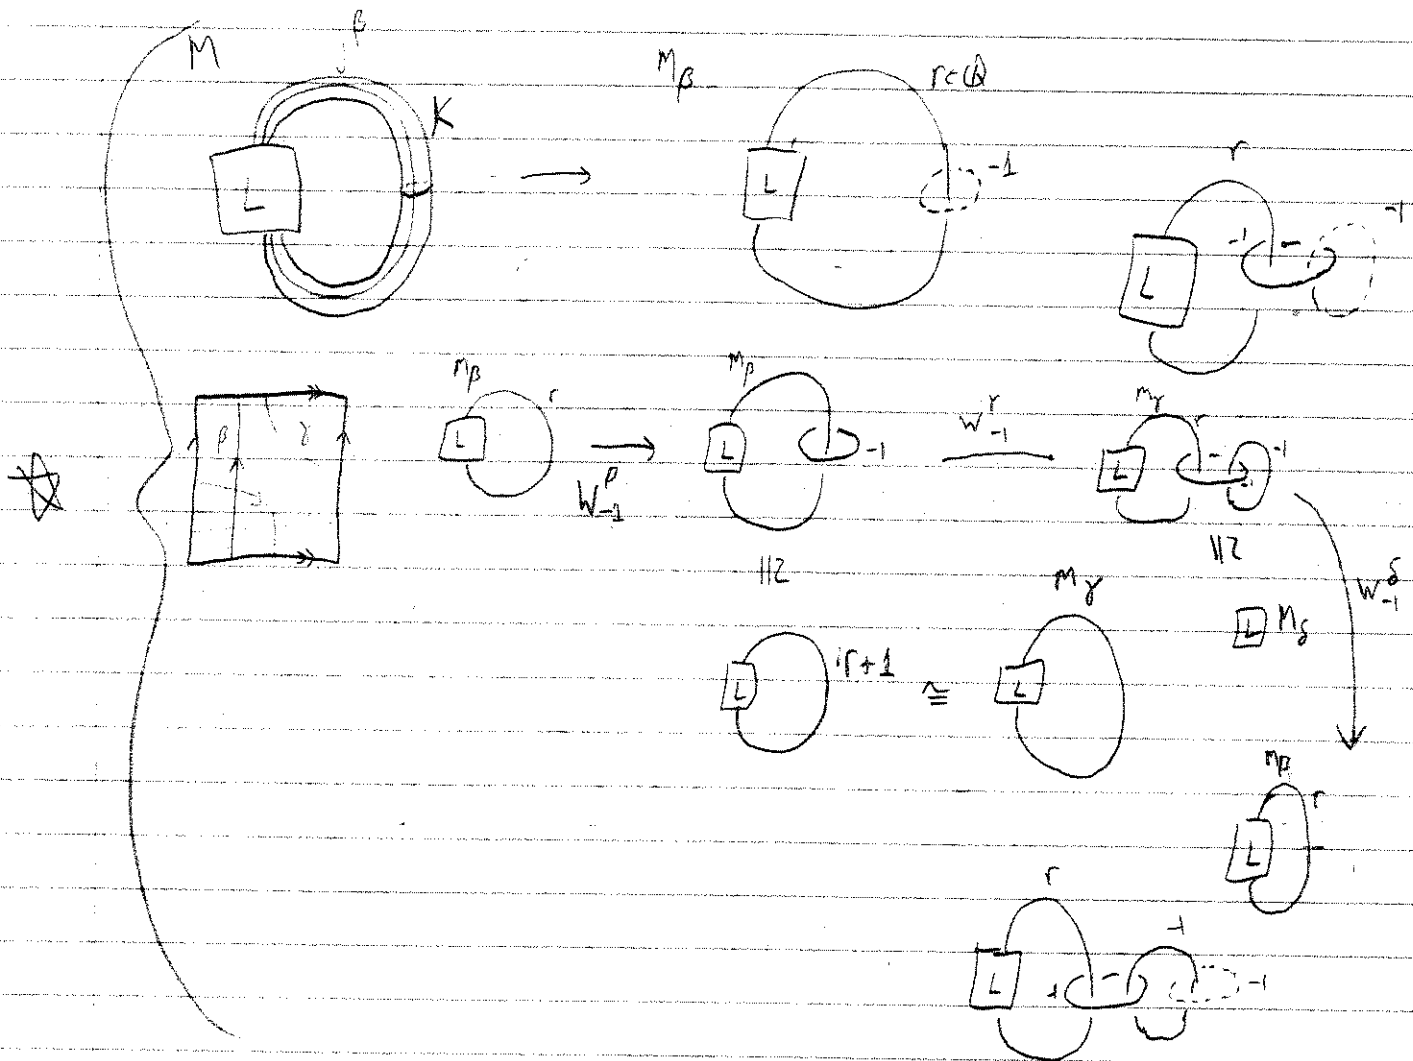 M
β
K
L
M_β
r∈ℚ
L
-1
r
L
-1
-
-1
β
γ
M_β
L
r
W_{-1}^β
M_β
L
-1
W_{-1}^γ
M_γ
L
r
-
-1
-1
W_{-1}^δ
L
r+1
≅
M_γ
L
L M_δ
M_β
L
r
r
L
-1
-1